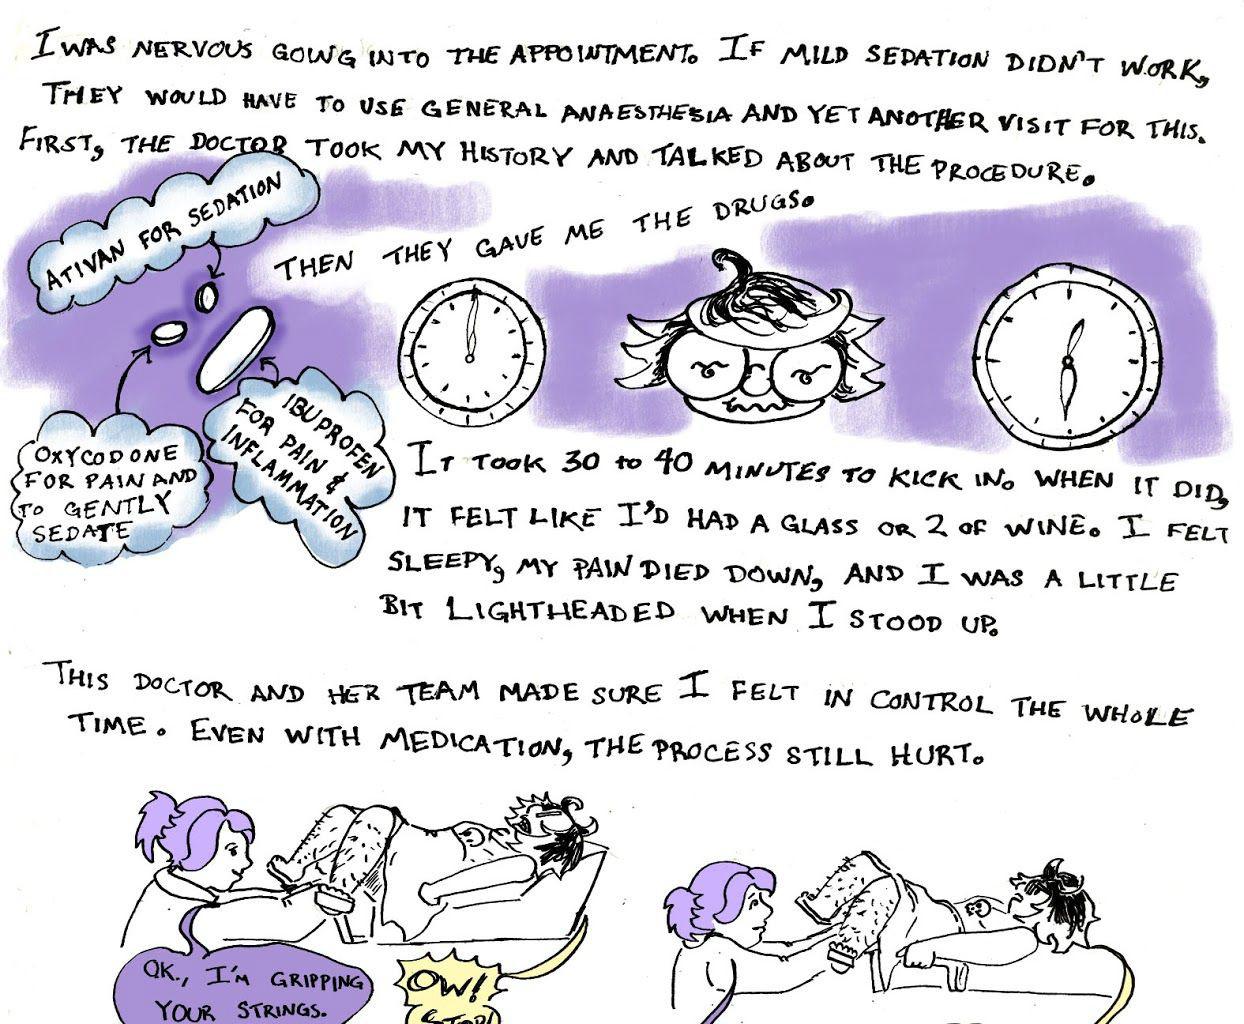 I WAS NERVOUS GOING INTO THE APPOINTMENT. IF MILD SEDATION DIDN'T WORK,
THEY WOULD HAVE TO USE GENERAL ANAESTHESIA AND YET ANOTHER VISIT FOR THIS.
FIRST, THE DOCTOR TOOK MY HISTORY AND TALKED ABOUT THE PROCEDURE.
THEN THEY GAVE ME THE DRUGS.
ATIVAN FOR SEDATION
OXYCODONE
FOR PAIN AND
TO GENTLY
SEDATE
IBUPROFEN
FOR PAIN &
INFLAMMATION
IT TOOK 30 to 40 MINUTES TO KICK IN. WHEN IT DID,
IT FELT LIKE I'D HAD A GLASS OR 2 OF WINE. I FELT
SLEEPY, MY PAIN DIED DOWN, AND I WAS A LITTLE
BIT LIGHTHEADED WHEN I STOOD UP.
THIS DOCTOR AND HER TEAM MADE SURE I FELT IN CONTROL THE WHOLE
TIME. EVEN WITH MEDICATION, THE PROCESS STILL HURT.
OK., I'M GRIPPING
YOUR STRINGS.
OW!
STOP!